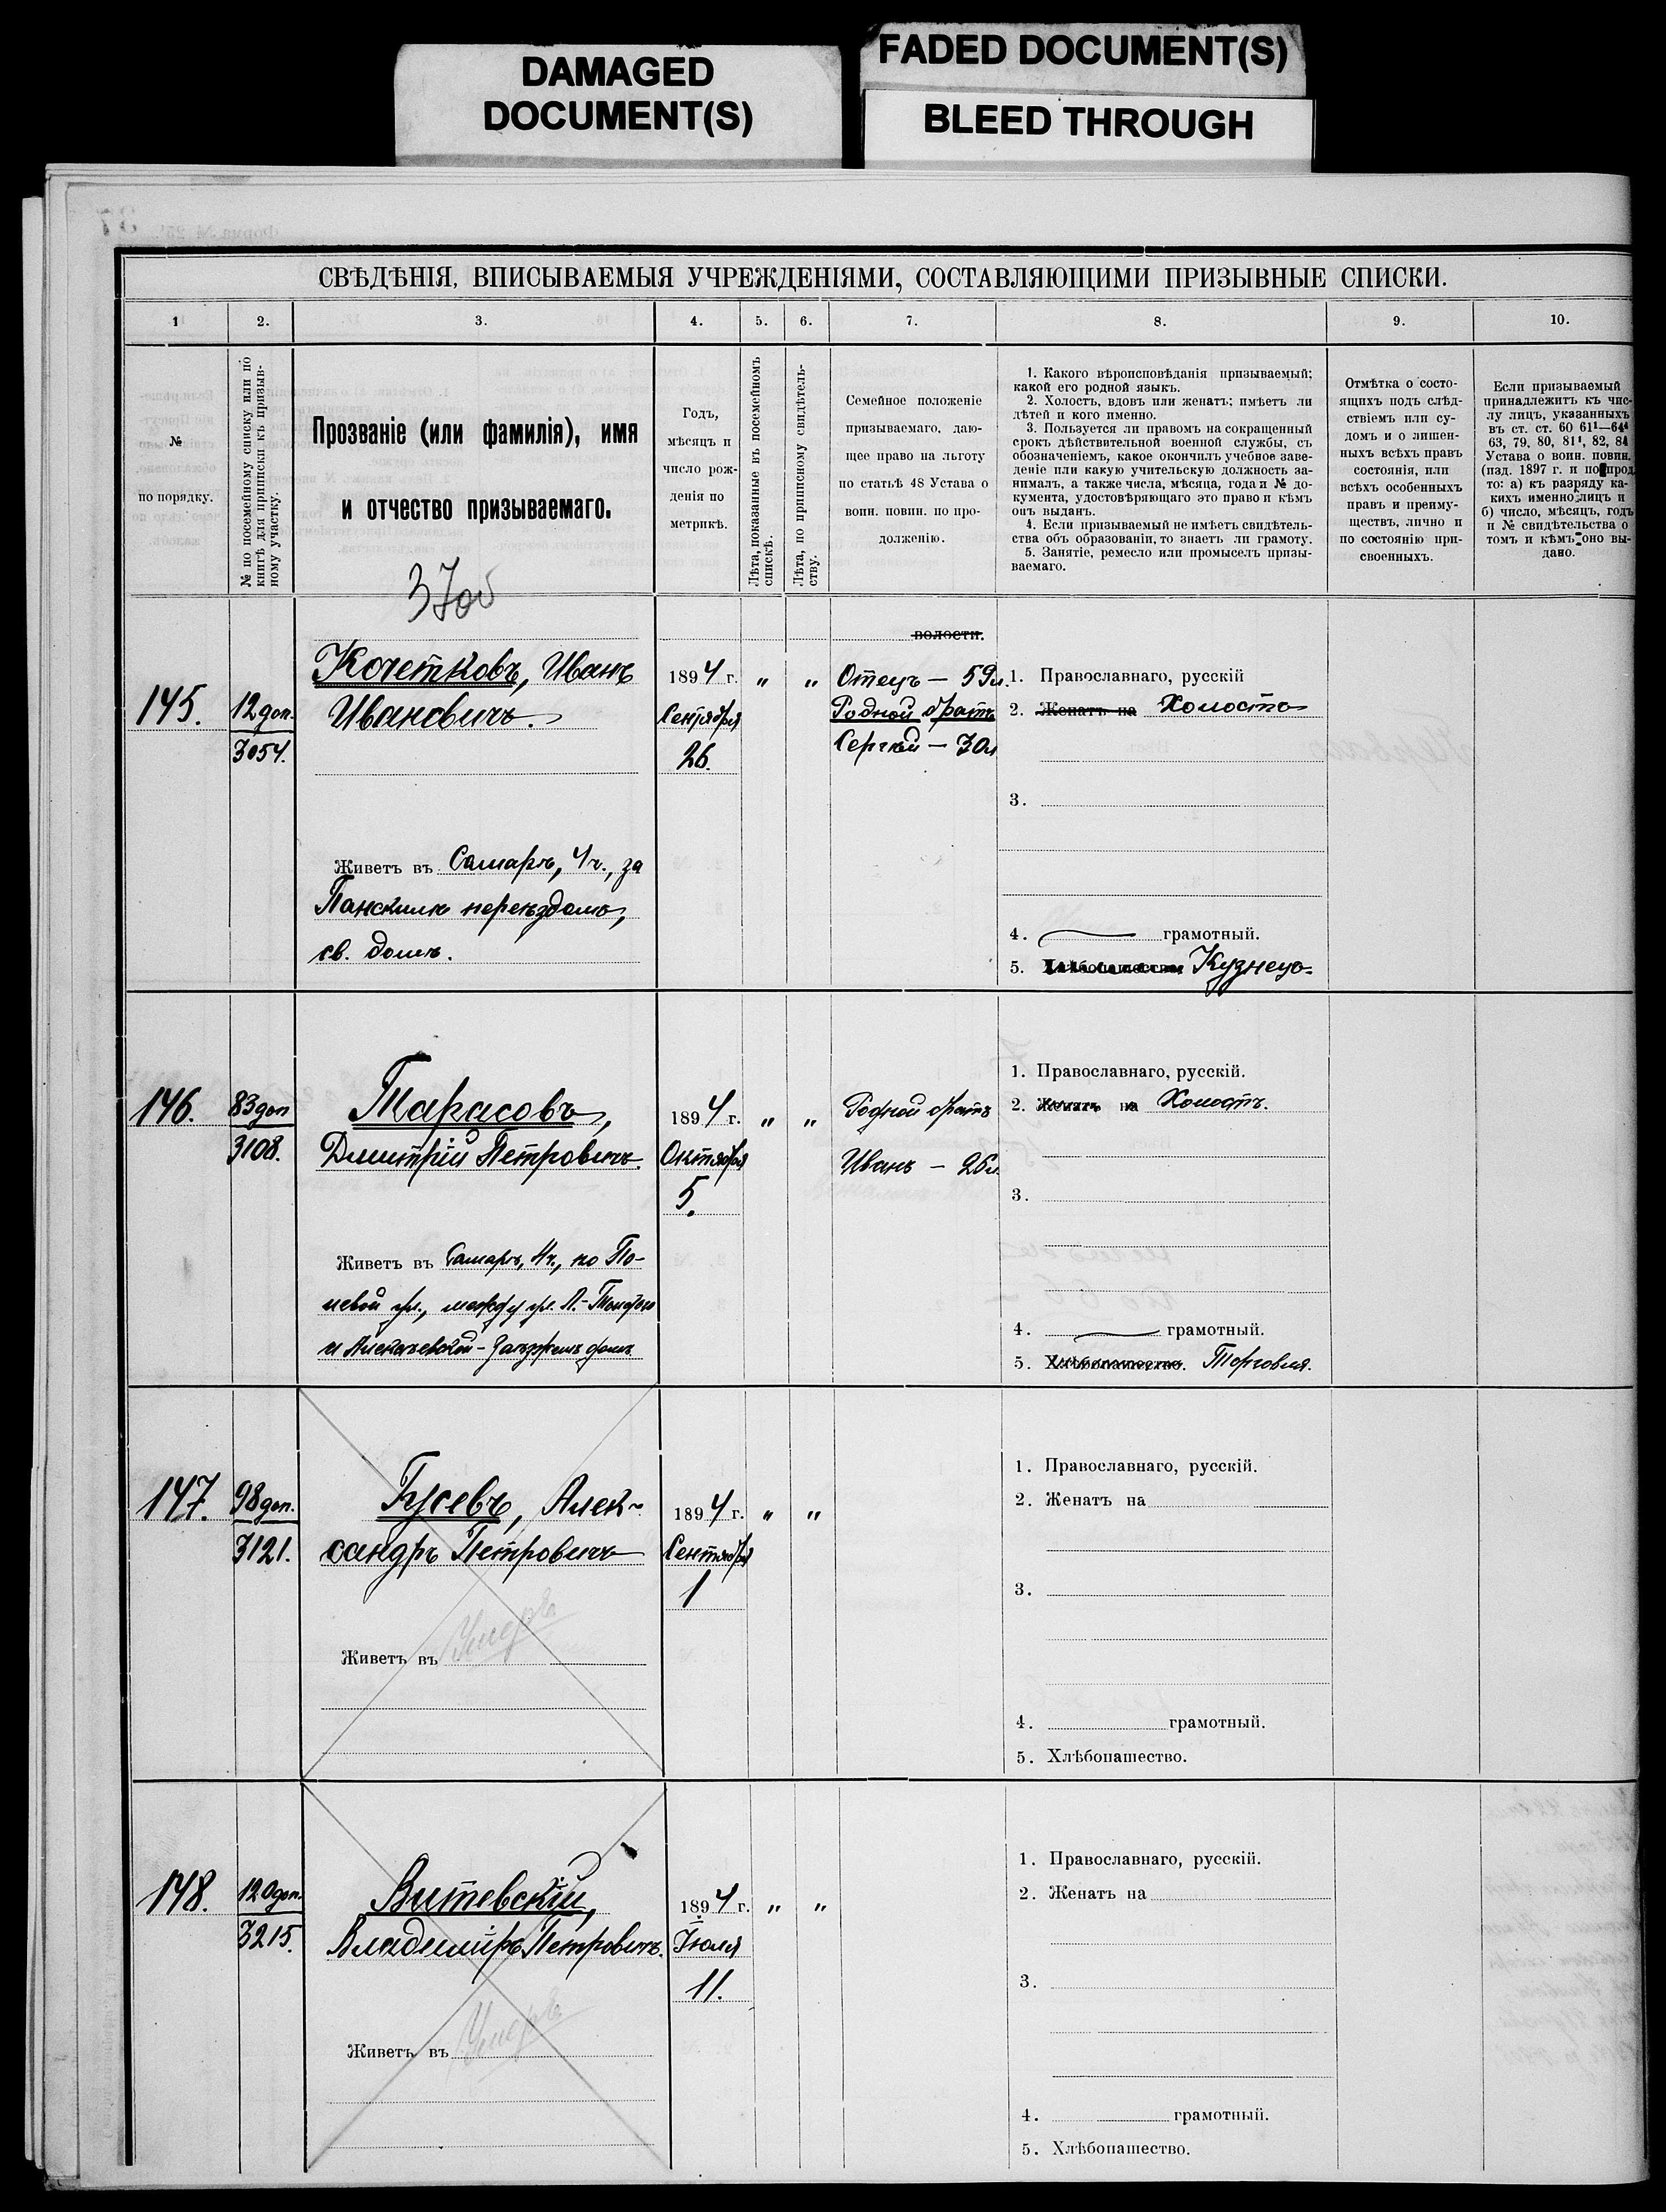 DAMAGED
DOCUMENT(S)
FADED DOCUMENT(S)
BLEED THROUGH
СВѢДѢНІЯ, ВПИСЫВАЕМЫЯ УЧРЕЖДЕНІЯМИ, СОСТАВЛЯЮЩИМИ ПРИЗЫВНЫЕ СПИСКИ.
1 2. 3. 4. 5. 6. 7. 8. 9. 10.
№
по порядку.
№ по посемейному списку или по
книгѣ для приписки къ призыв-
ному участку.
Прозваніе (или фамилія), имя
и отчество призываемаго.
Годъ,
мѣсяцъ и
число рож-
денія по
метрикѣ.
Лѣта, показанные въ посемейномъ
спискѣ.
Лѣта, по приписному свидѣтель-
ству.
Семейное положеніе
призываемаго, даю-
щее право на льготу
по статьѣ 48 Устава о
воин. повин. по про-
долженію.
1. Какого вѣроисповѣданія призываемый;
какой его родной языкъ.
2. Холостъ, вдовъ или женатъ; имѣетъ ли
дѣтей и кого именно.
3. Пользуется ли правомъ на сокращенный
срокъ дѣйствительной военной службы, съ
обозначеніемъ, какое окончилъ учебное заве-
деніе или какую учительскую должность за-
нималъ, а также числа, мѣсяца, года и № до-
кумента, удостовѣряющаго это право и кѣмъ
онъ выданъ.
4. Если призываемый не имѣетъ свидѣтель-
ства объ образованіи, то знаетъ ли грамоту.
5. Занятіе, ремесло или промыселъ призы-
ваемаго.
Отмѣтка о состо-
ящихъ подъ слѣд-
ствіемъ или су-
домъ и о лишен-
ныхъ всѣхъ правъ
состоянія, или
всѣхъ особенныхъ
правъ и преиму-
ществъ, лично и
по состоянію при-
своенныхъ.
Если призываемый
принадлежитъ къ чис-
лу лицъ, указанныхъ
въ ст. ст. 60 61¹—64⁴
63, 79, 80, 81¹, 82, 84
Устава о воин. повин.
(изд. 1897 г. и по прод.
то: а) къ разряду ка-
кихъ именно лицъ и
б) число, мѣсяцъ, годъ
и № свидѣтельства о
томъ и кѣмъ оно вы-
дано.
145.
12 доп.
3054.
Кочетковъ, Иванъ
Ивановичъ.
Живетъ въ Самарѣ, 4 ч., за
Панскимъ переѣздомъ,
св. домъ.
1894 г.
Сентября
26.
„ „
волости.
Отецъ — 59 л.
Родной братъ
Сергѣй — 30 л
1. Православнаго, русскій
2. Женатъ на Холостъ
3.
4. грамотный.
5. Хлѣбопашество Кузнецъ
146.
83 доп
3108.
Тарасовъ,
Дмитрій Петровичъ.
Живетъ въ Самарѣ, 4 ч., по По-
левой ул., между ул. Л.-Толстого
и Алексѣевской -
1894 г.
Октября
5.
„ „
Родной братъ
Иванъ — 26 л.
1. Православнаго, русскій.
2. Женатъ на Холостъ.
3.
4. грамотный.
5. Хлѣбопашество. Торговля.
147.
98 доп.
3121.
Гусевъ, Алек-
сандръ Петровичъ
Живетъ въ Умеръ
1894 г.
Сентября
1
„ „
1. Православнаго, русскій.
2. Женатъ на
3.
4. грамотный.
5. Хлѣбопашество.
148.
120 доп.
3215.
Витевскій,
Владиміръ Петровичъ.
Живетъ въ Умеръ
1894 г.
Іюля
11.
„ „
1. Православнаго, русскій.
2. Женатъ на
3.
4. грамотный.
5. Хлѣбопашество.